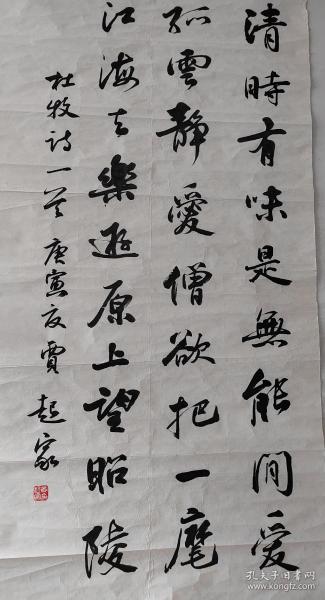 清時有味是無能閒爱
孤雲靜愛僧欲把一麾
江海去樂遊原上望昭陵
杜牧诗一首 庚寅夏賈起家
孔夫子旧书网